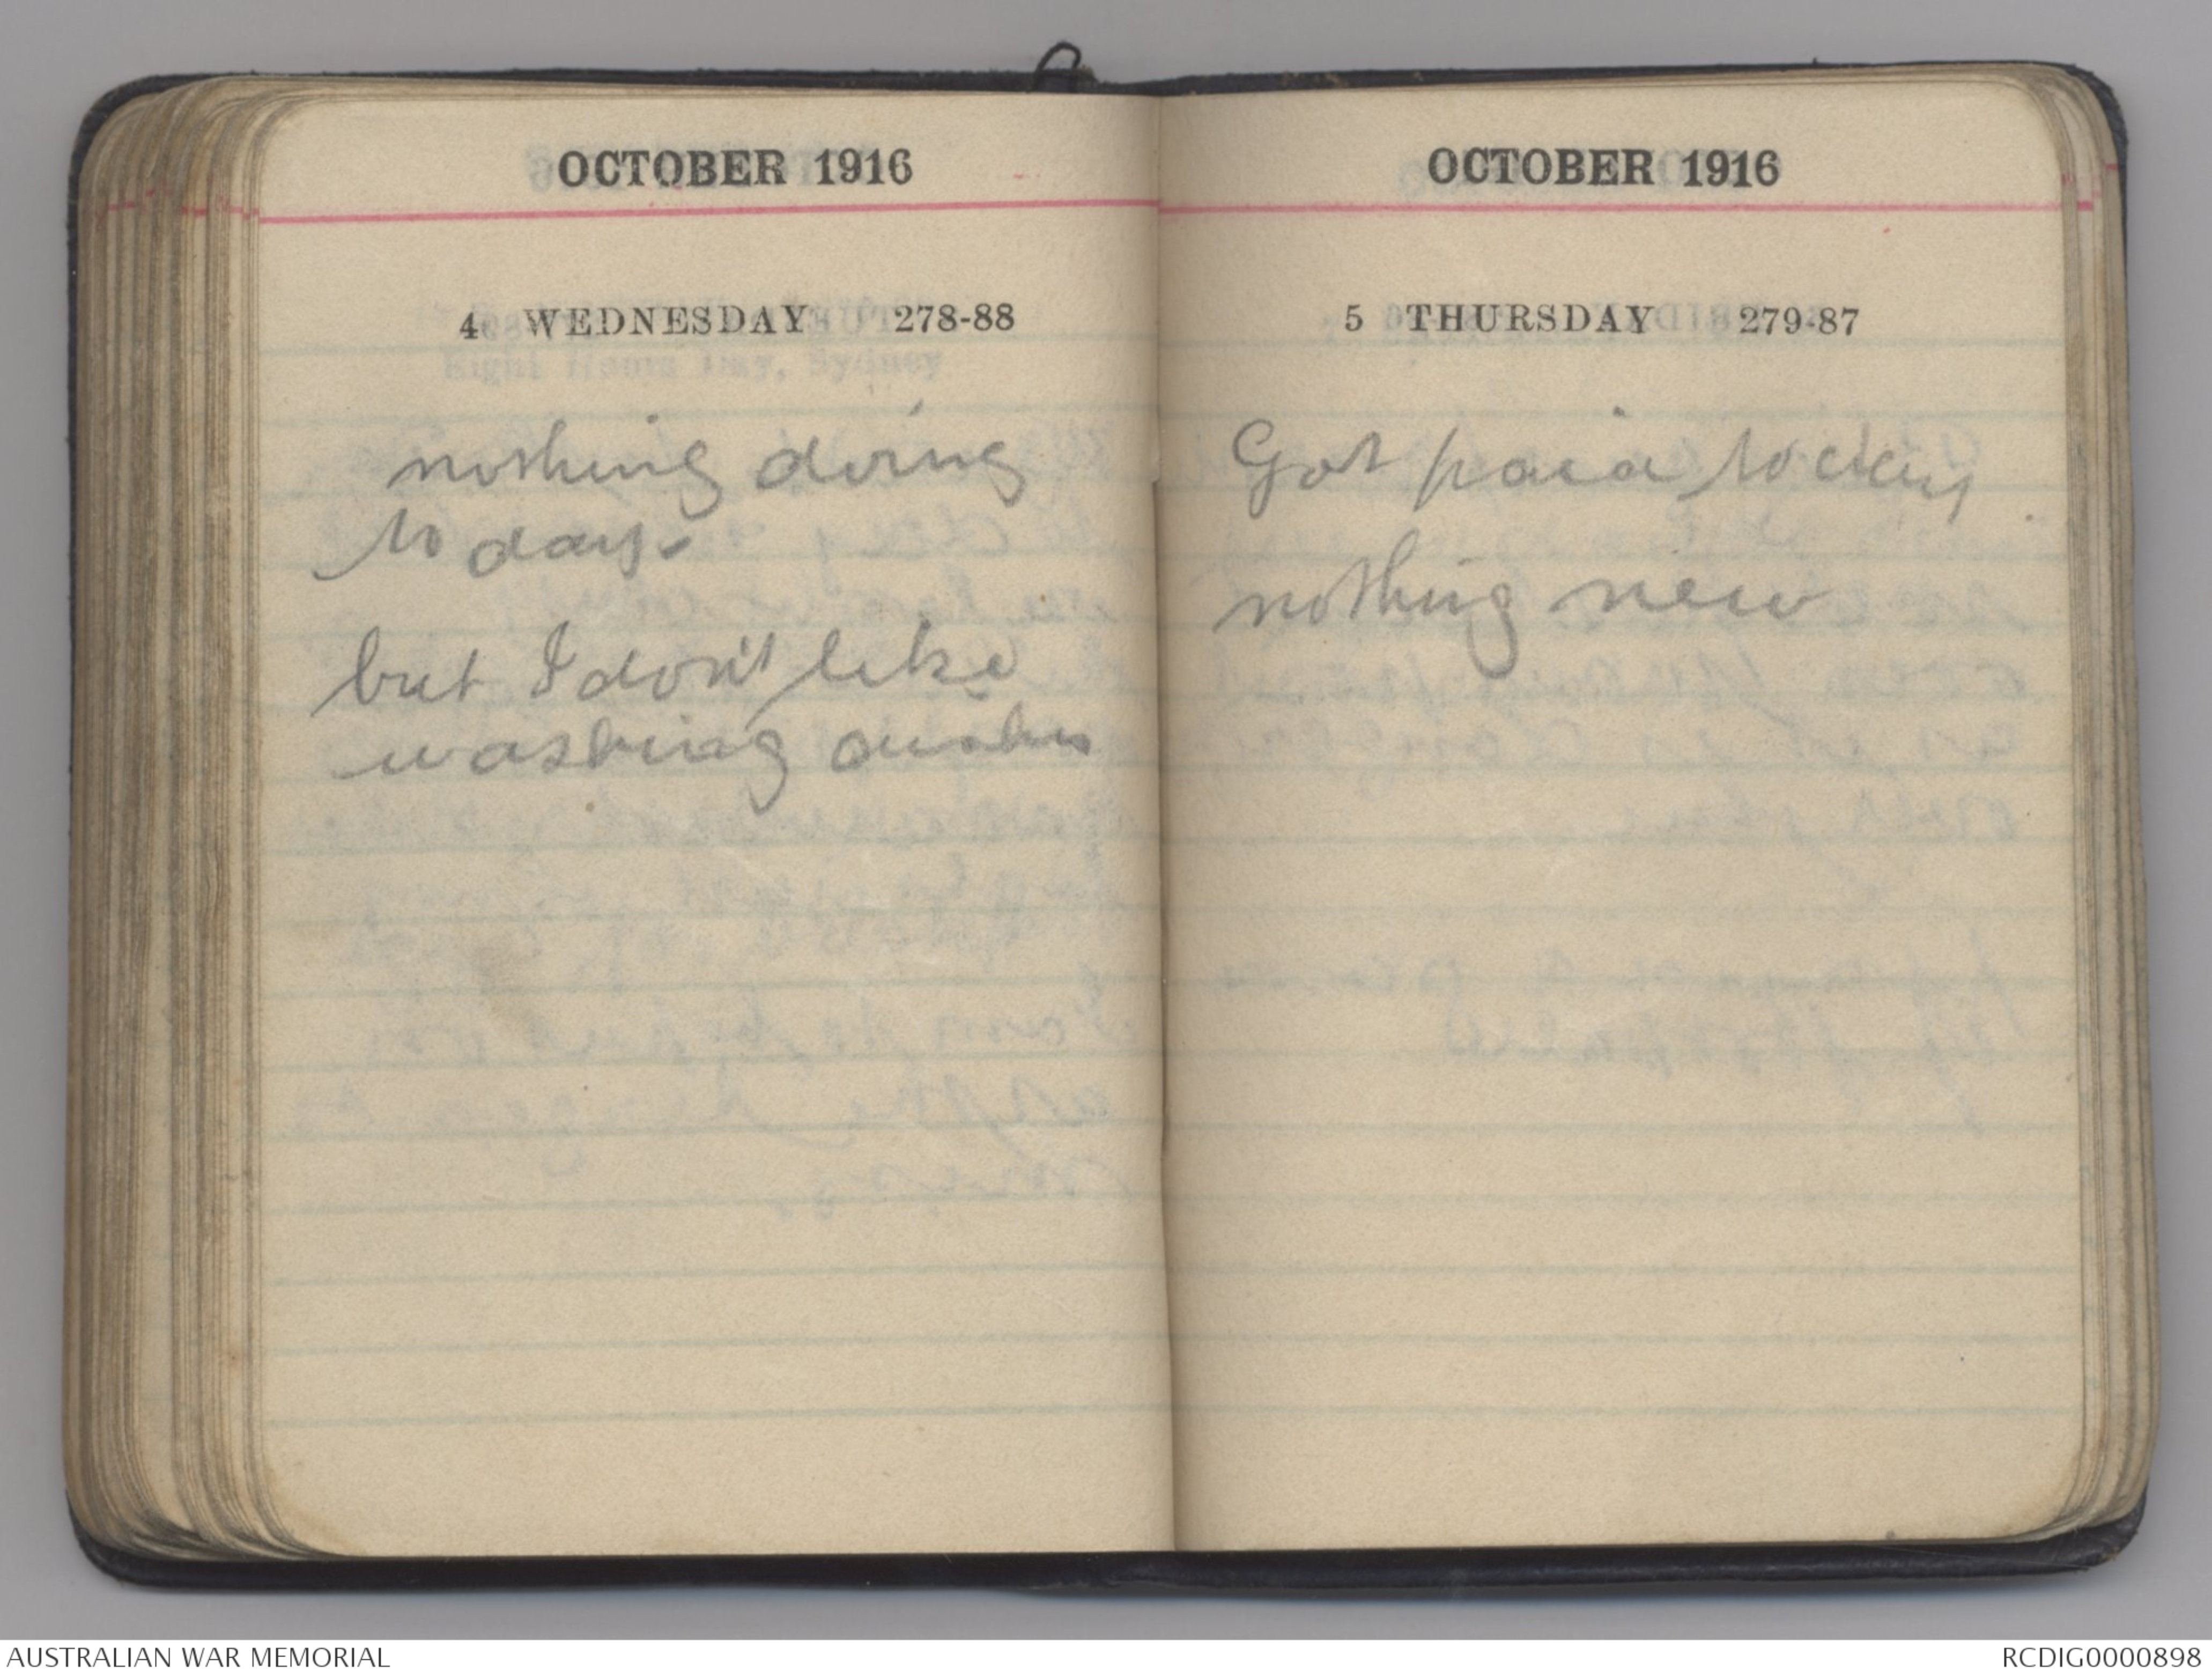 OCTOBER 1916
4 WEDNESDAY 278-88
nothing doing
to day.
but I don't like
washing dishes
OCTOBER 1916
5 THURSDAY 279-87
Got paid to day
nothing new
AUSTRALIAN WAR MEMORIAL
RCDIG0000898